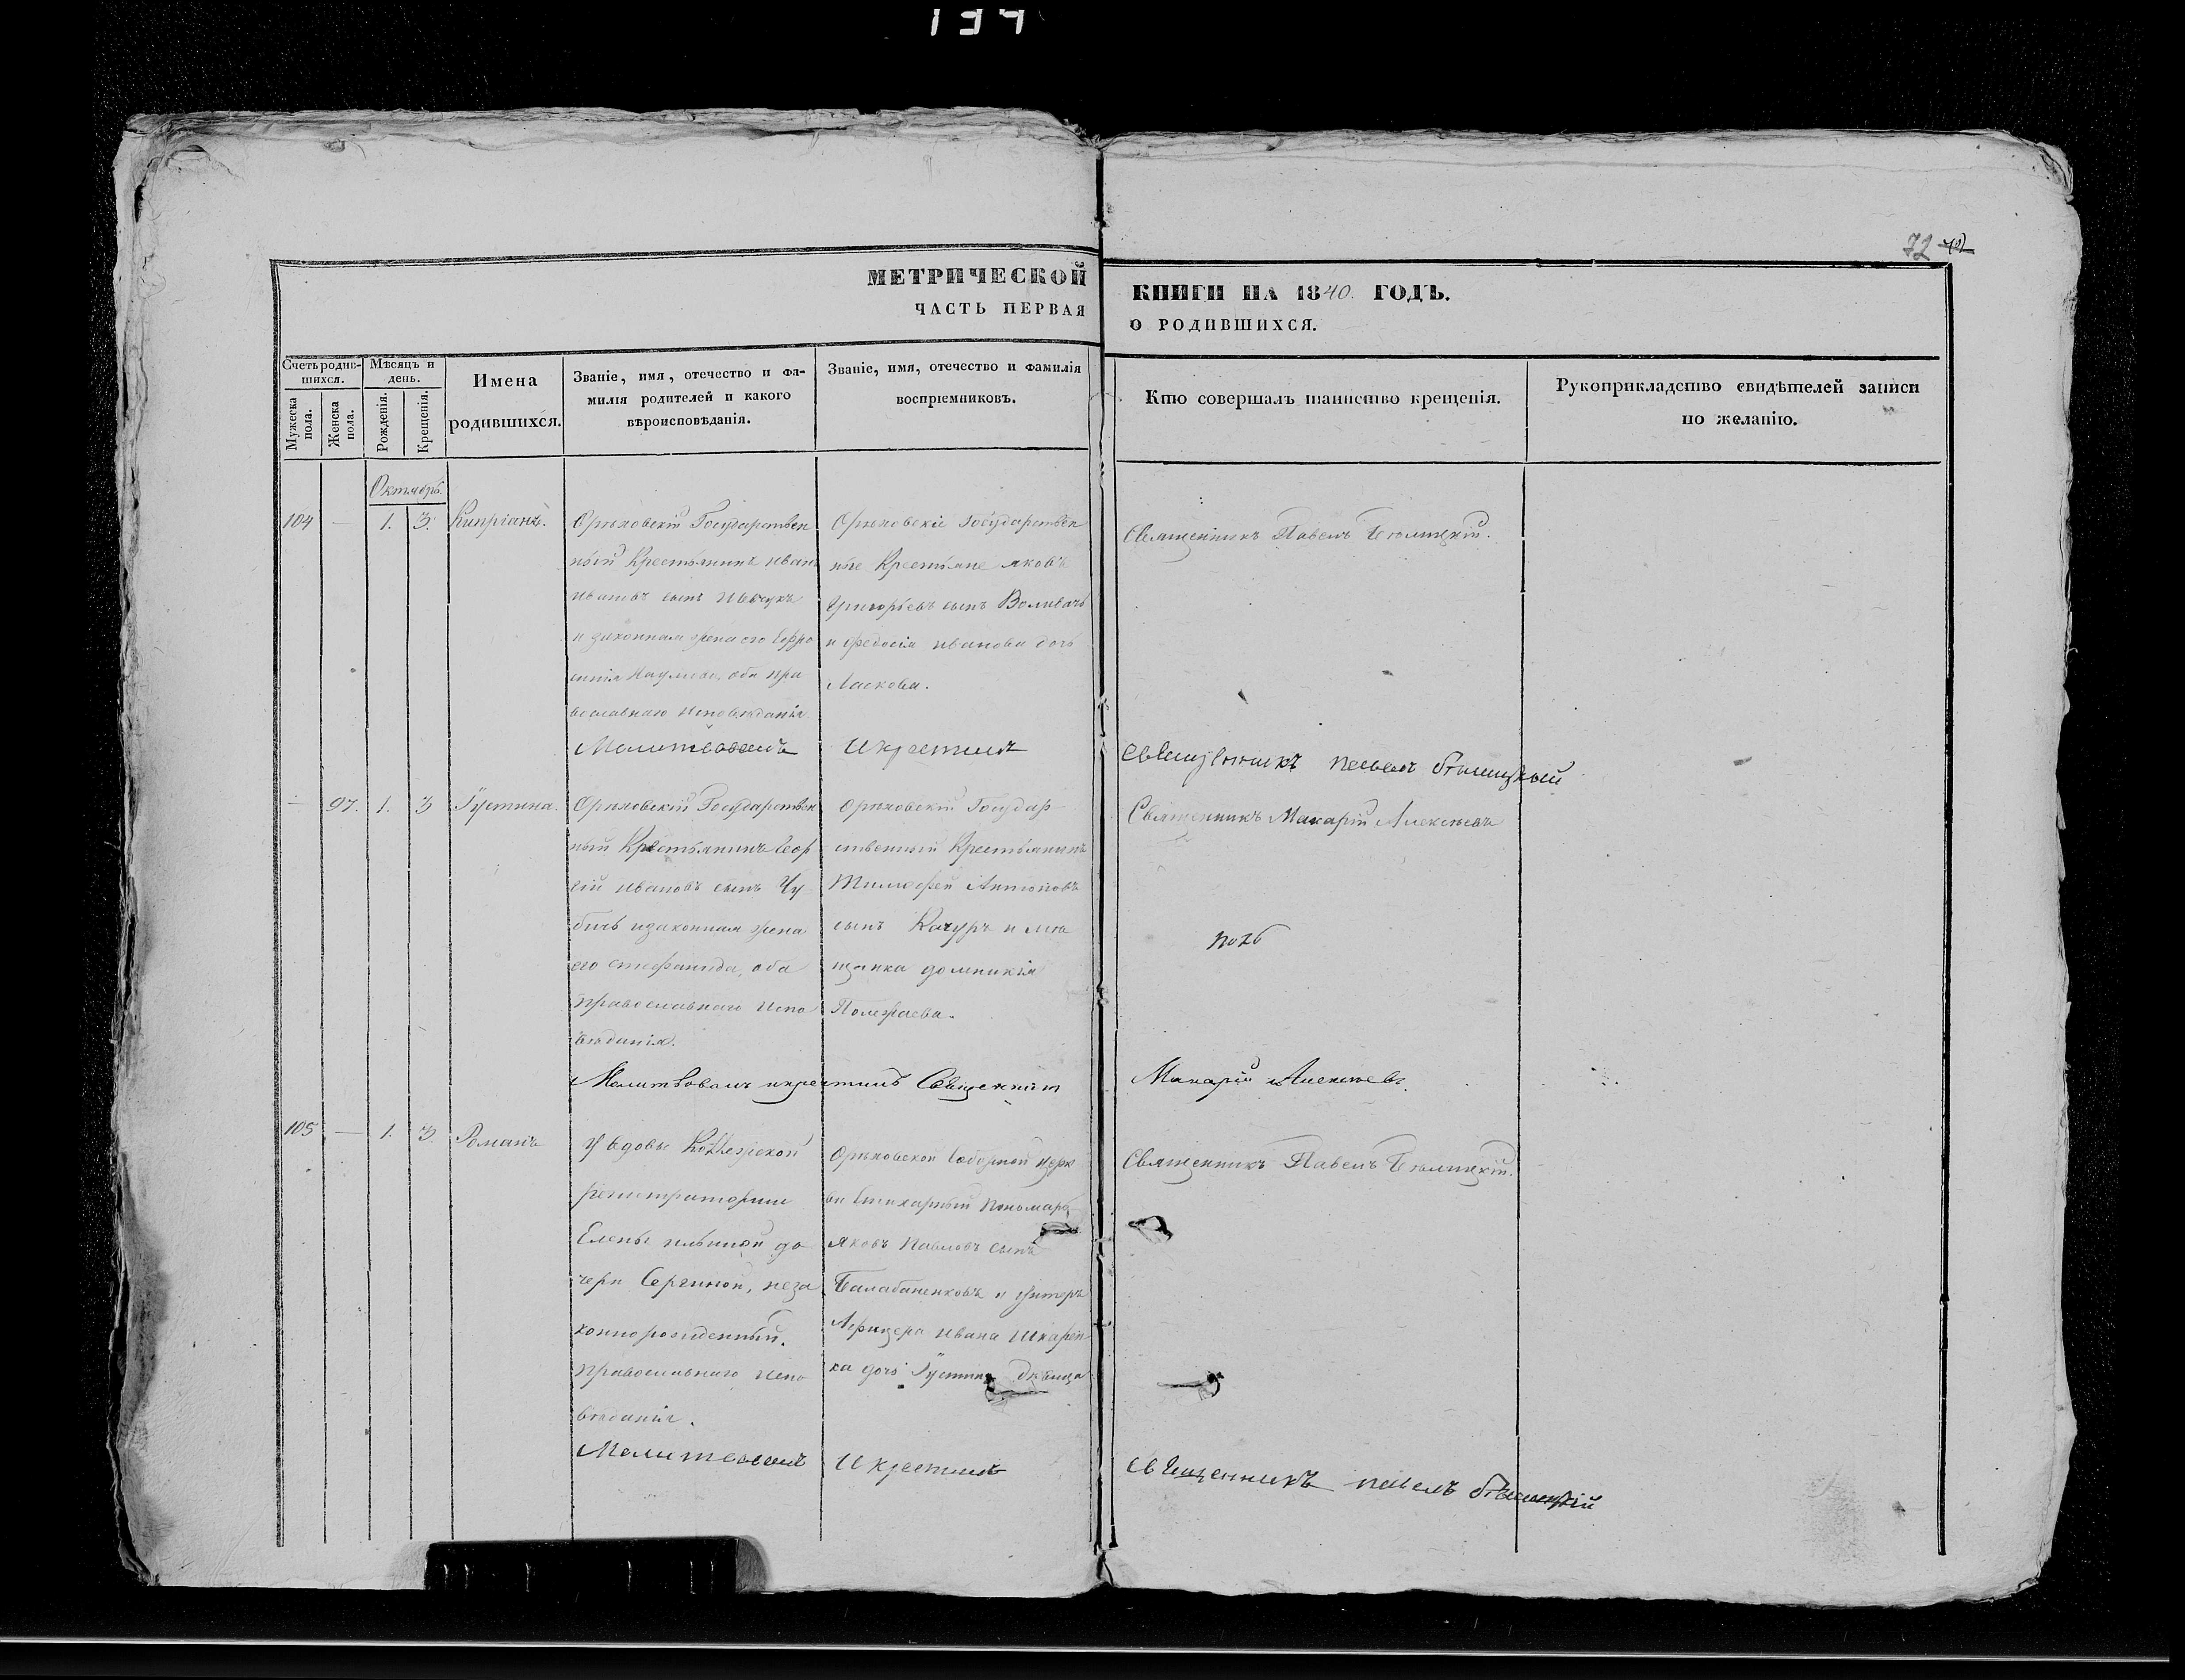 137
72
МЕТРИЧЕСКОЙ
ЧАСТЬ ПЕРВАЯ
КНИГИ НА 1840. ГОДЪ.
О РОДИВШИХСЯ.
Счетъ родив-
шихся.
Мужеска
пола.
Женска
пола.
Мѣсяцъ и
день.
Рожденія.
Крещенія.
Имена
родившихся.
Званіе, имя, отечество и фа-
милія родителей и какого
вѣроисповѣданія.
Званіе, имя, отечество и фамилія
воспріемниковъ.
Кто совершалъ таинство крещенія.
Рукоприкладство свидѣтелей записи
по желанію.
Октябрь.
104 — 1. 3. Кипріанъ.
Орѣховскій Государствен
ный Крестьянинъ Иванъ
Ивановъ сынъ
и законная жена его Евфро
синія Наумова, оба пра
вославнаго Исповѣданія
Орѣховскіе Государствен
ные Крестьяне Яковъ
Григорьевъ сынъ Воливачь
и Федосія Иванова дочь
Ласкова.
Священникъ Павелъ Бѣлицкій.
Молитвовалъ И крестилъ Священникъ Павелъ Бѣлицкый
— 97. 1. 3 Іустина.
Орѣховскій Государствен
ный Крестьянинъ Геор
гій Ивановъ сынъ Чу
бичь и законная жена
его Стефанида, оба
православнаго Испо
вѣданія.
Орѣховскій Государ
ственный Крестьянинъ
Тимофей Антоновъ
сынъ Качуръ и мѣ
щанка Домникія
Полежаева.
Священникъ Макарій Алексѣевъ
Молитвовалъ и крестилъ Священник Макарій Алексѣевъ.
105 — 1. 3. Романъ
У вдовы Коллежской
регистраторши
Елены Ильиной до
чери Сергиной, неза
коннорожденный.
православнаго Испо
вѣданія.
Орѣховской Соборной церк
ви Стихарный Пономарь
Яковъ Павловъ сынъ
Балабаненковъ и Унтеръ
Афицера Ивана Шкарен
ка дочь Іустина Дѣвица
Священникъ Павелъ Бѣлицкій.
Молитвовалъ И крестилъ Священникъ Павелъ Бѣлицкій